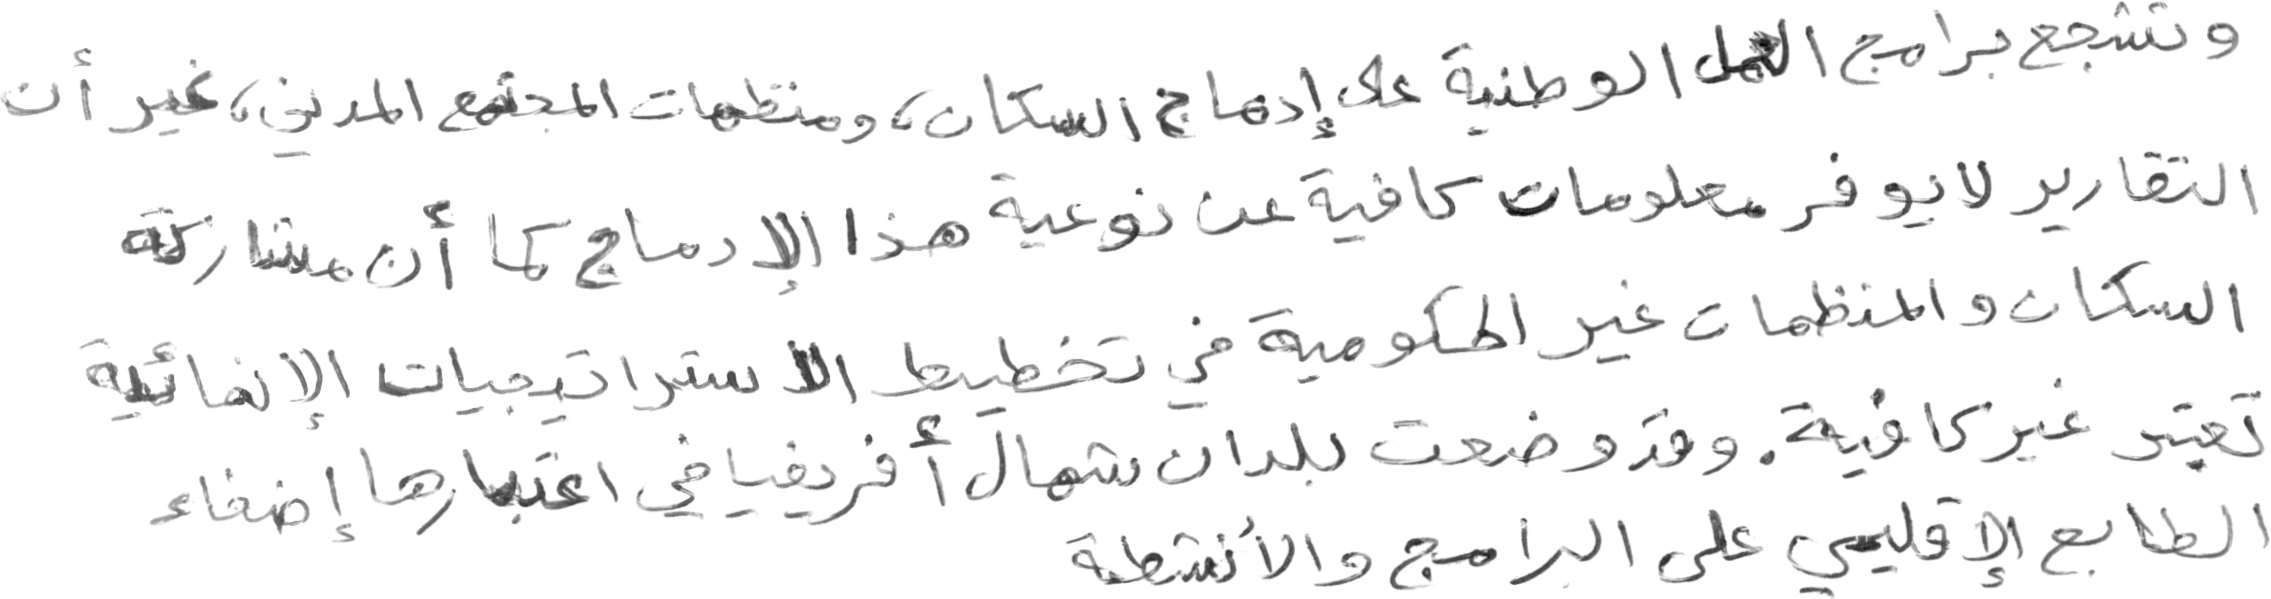 وتشجع برامج العمل الوطنية على إدماج السكان، ومنظمات المجتمع المدني، غير أن
التقارير لا يوفر معلومات كافية عن نوعية هذا الإدماج كما أن مشاركة
السكان والمنظمات غير الحكومية في تخطيط الاستراتيجيات الإنمائية
تعتبر غير كافية. وقد وضعت بلدان شمال أفريقيا في اعتبارها إضفاء
الطابع الإقليمي على البرامج والأنشطة